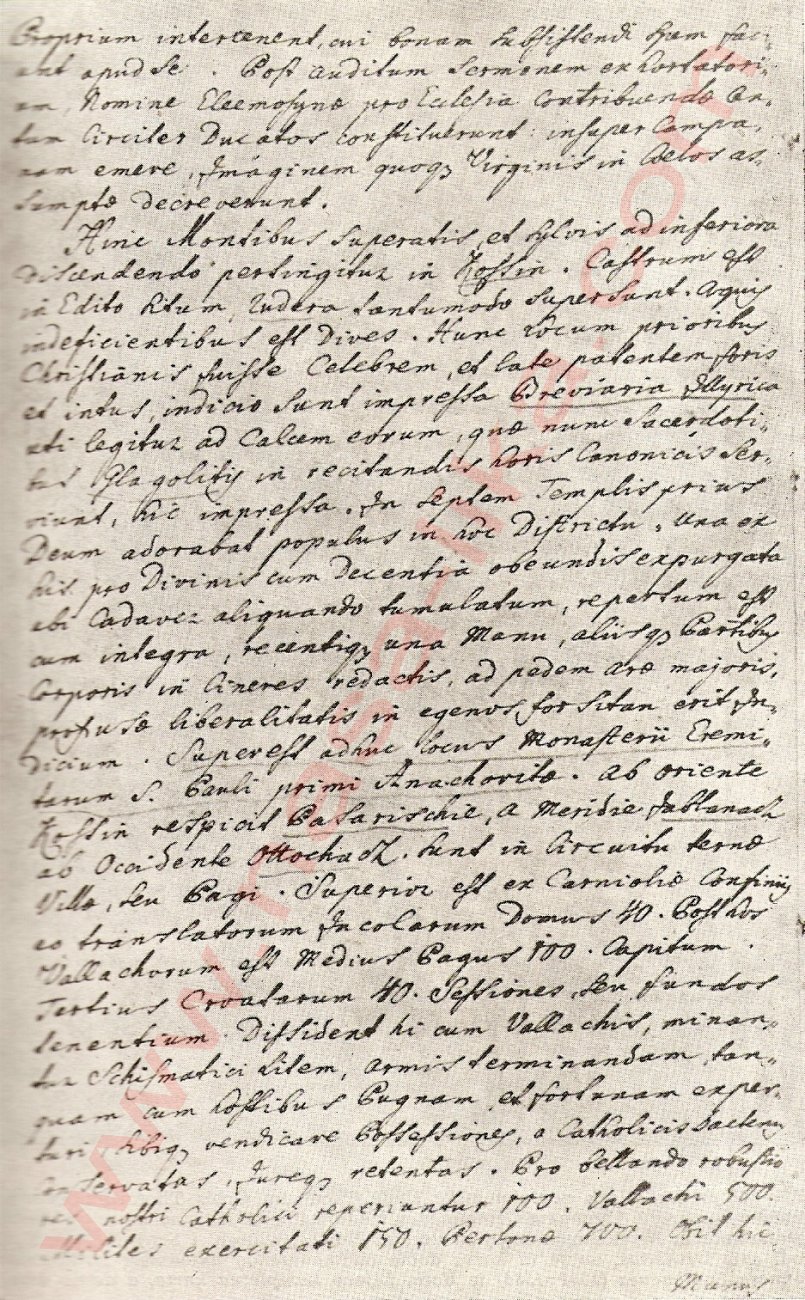 Proprium intercenent, cui bonam subsistendi spem faci-
unt apud se. Post auditum sermonem exhortatori-
um, Nomine Eleemosynæ pro Ecclesia contribuendæ Cen-
tum Circiter Ducatos constituerunt: insuper Campa-
nam emere, Imáginem quoq, Virginis in Coelos as-
sumptæ decreverunt.
Hinc Montibus superatis, et sylvis ad inferiora
discendendo pertingitur in Kossin. Castrum est
in Edito situm, rudera tantumodo supersunt. aquis
indeficientibus est Dives. Hunc locum prioribus
Christianis fuisse Celebrem, et late patentem foris
et intus, indicio sunt impressa Breviaria Illyrica
uti legitur ad Calcem eorum, quæ nunc Sacerdoti-
bus Glagolitis in recitandis horis Canonicis ser-
viunt, hic impressa. In septem Templis prius
Deum adorabat populus in hoc Districtu, una ex
his pro Divinis cum Decentia obeundis expurgata
ubi Cadaver aliquando tumulatum, repertum est
cum integra, recentiq, una Manu, aliisq, Partibus
Corporis in Cineres redactis, ad pedem aræ majoris,
profusæ liberalitatis in egenos forsitan erit In-
dicium. Superest adhuc locus Monasterii Eremi-
tarum S. Pauli primi Anachoritæ. ab oriente
Kossin respicit Pasarischie, a Meridie Jablanacz
ab Occidente Ottochacz. sunt in Circuitu ternæ
Villæ, seu Pagi. Superior est ex Carnioliæ Confiniis
eo translatorum Incolarum Domus 40. Post hos
Vallachorum est Medius Pagus 100. Capitum
Tertius Croatarum 40. Sessiones, seu fundos
tenentium. Dissident hi cum Vallachis, minan-
tur Schismatici litem, armis terminandam, tan-
quam cum hostibus Pugnam, et fortunam exper-
turi, sibiq, vendicare Possessiones, a Catholicis hactenus
Conservatas, Jureq, retentas. Pro bellando robustio
res nostri Catholici reperiuntur 100. Vallachi 500.
Milites exercitati 150. Personæ 700. Obit hic
Munus
www.nasa-lika.com